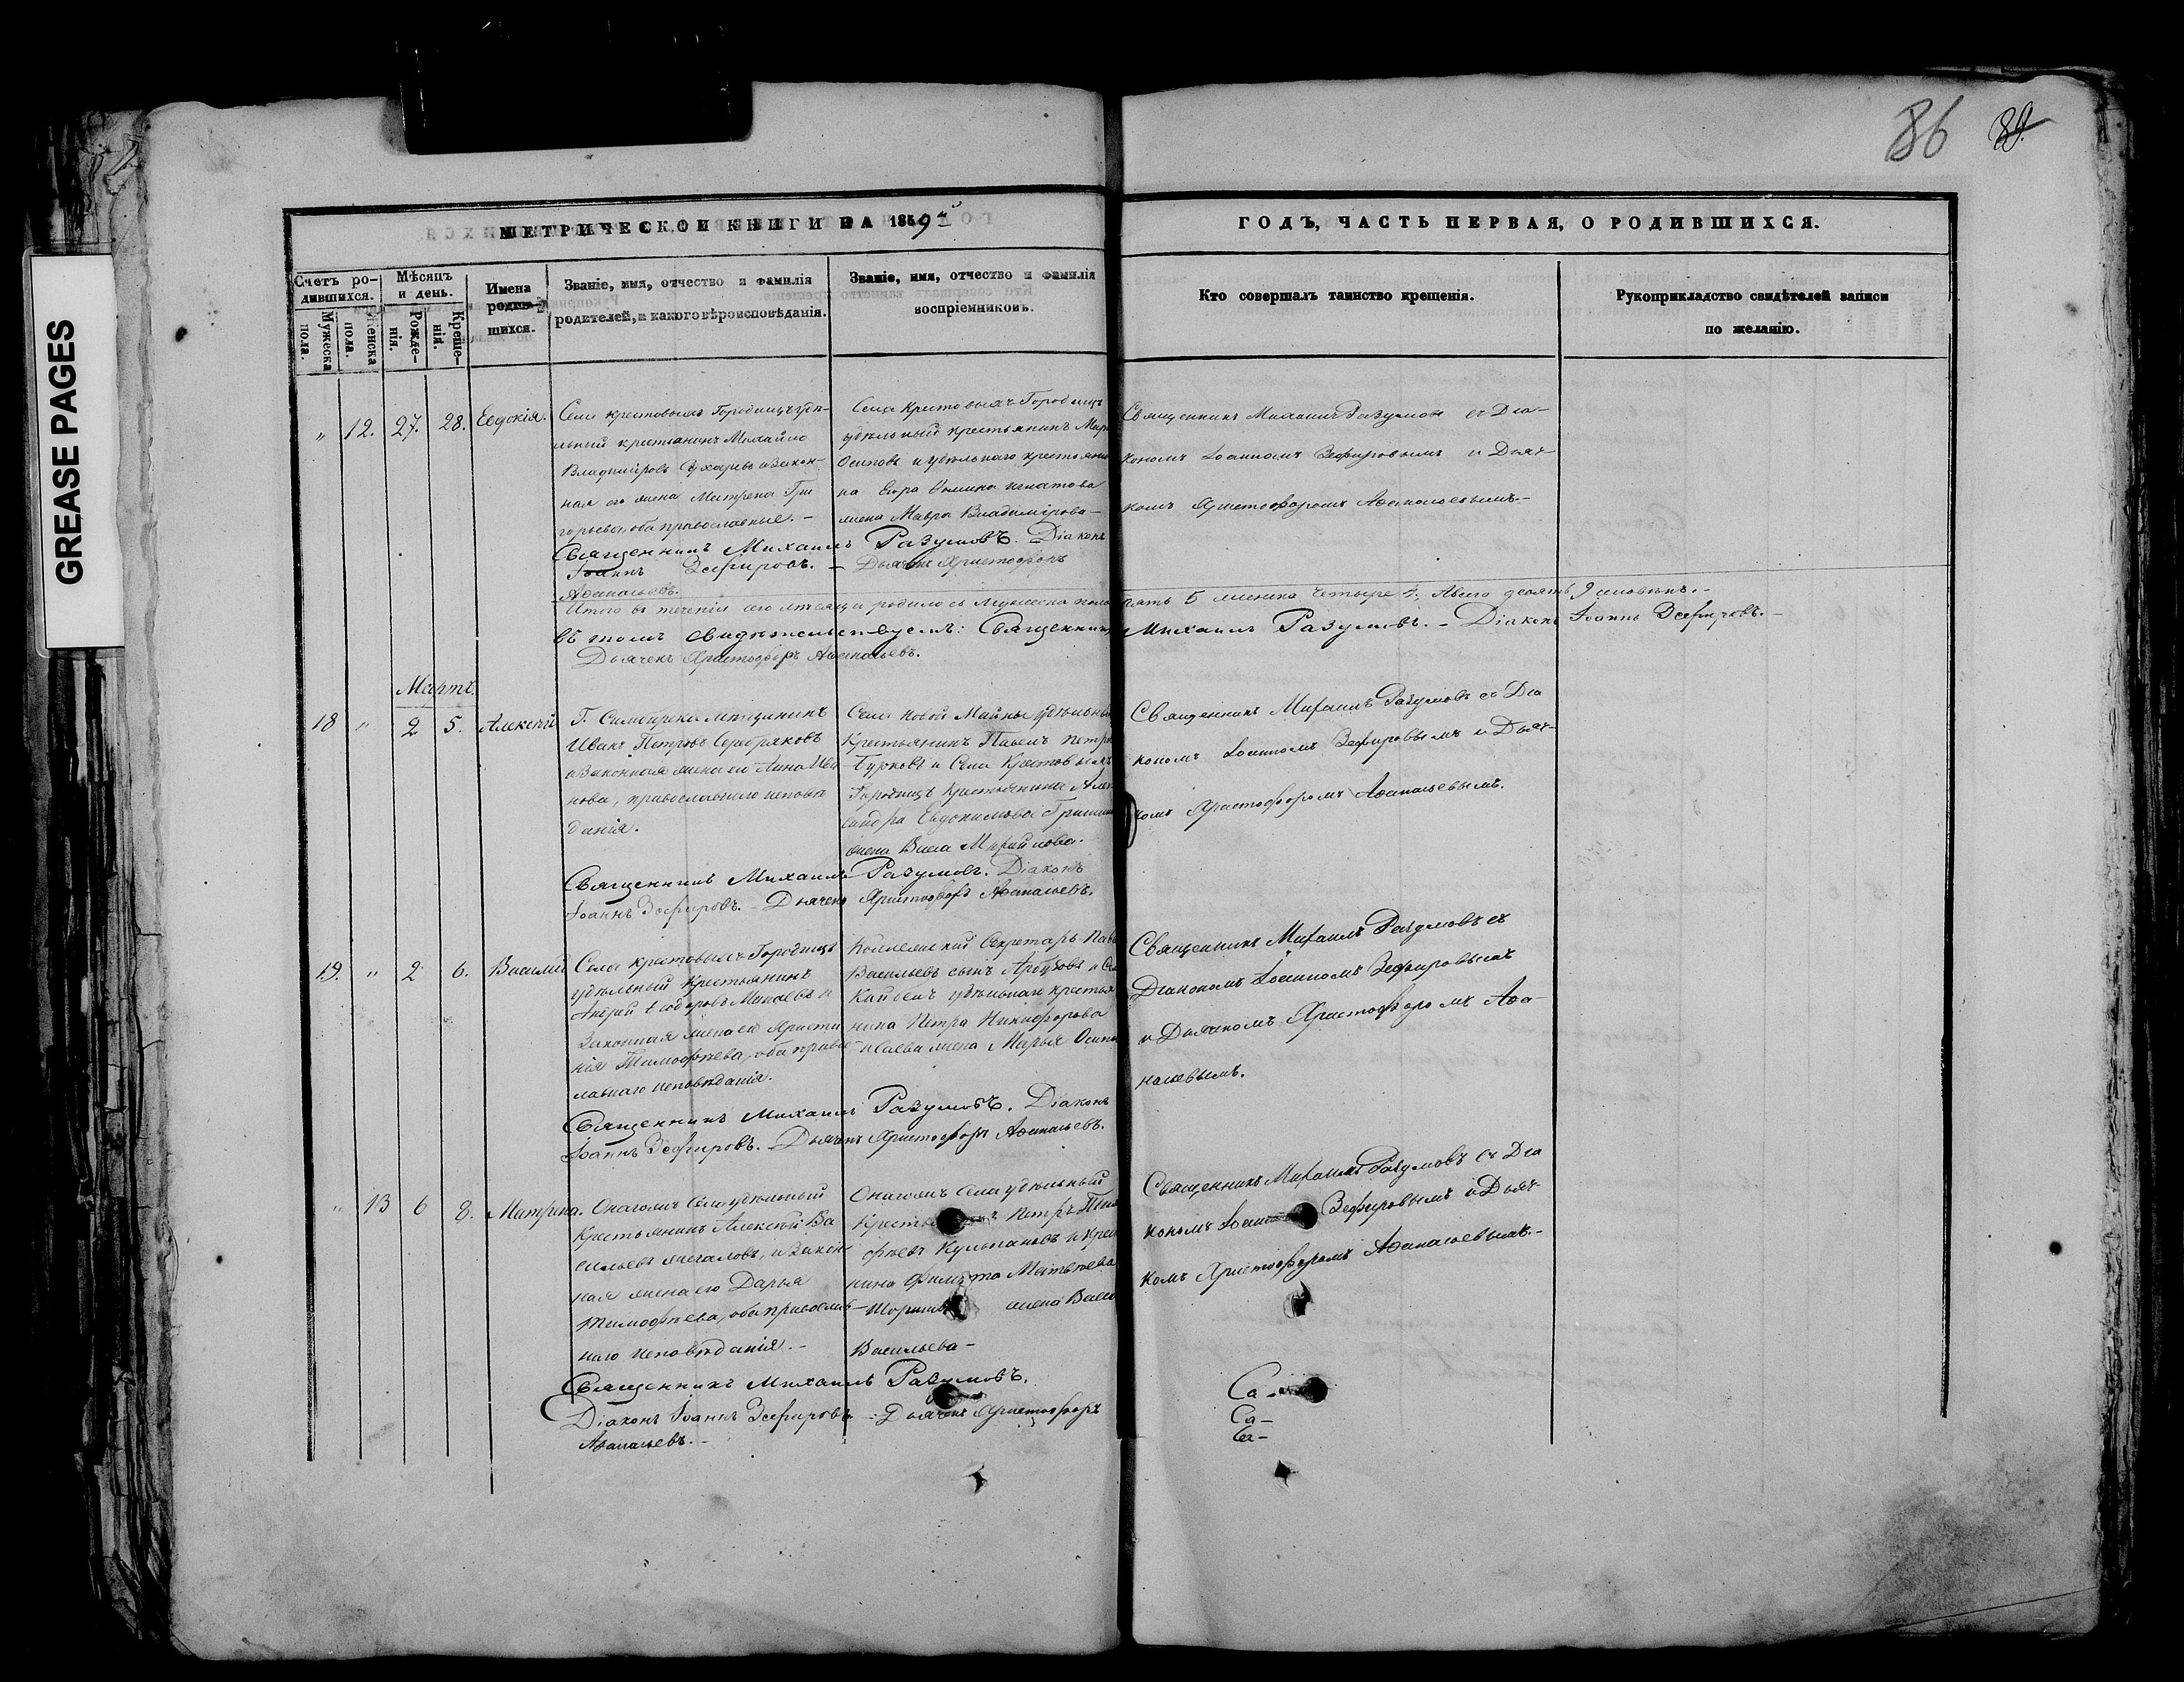 GREASE PAGES
86 89.
МЕТРИЧЕСКОЙ КНИГИ НА 1859й
ГОДЪ, ЧАСТЬ ПЕРВАЯ, О РОДИВШИХСЯ.
Счетъ ро-
дившихся.
Мужеска пола.
Женска пола.
Мѣсяцъ
и день.
Рожде-
нія.
Креще-
нія.
Имена
родив-
шихся.
Званіе, имя, отчество и фамилія
родителей, и какого вѣроисповѣданія.
Званіе, имя, отчество и фамилія
воспріемниковъ.
Кто совершалъ таинство крещенія.
Рукоприкладство свидѣтелей записи
по желанію.
" 12. 27. 28. Евдокія.
Села Крестовыхъ Городищъ удѣ-
льный крестьянинъ Михайло
Владиміровъ и закон-
ная его жена Матрена Гри
горьева, оба православные. –
Села Крестовыхъ Городищъ
удѣльный крестьянинъ
Осиповъ и удѣльнаго крестьяни
на Игнатова
жена Мавра Владимірова –
Священникъ Михаилъ Разумовъ съ Діа-
кономъ Іоанномъ Зефировымъ и Дьяч-
комъ Христофоромъ Афанасьевымъ. –
Священникъ Михаилъ Разумовъ. Діаконъ
Іоаннъ Зефировъ. – Дьячекъ Христофоръ
Афанасьевъ.
Итого въ теченіи сего мѣсяца родилось мужеска пола пять 5 женска четыре 4, Всего девять 9 человѣкъ. –
Въ томъ свидѣтельствуемъ: Священникъ Михаилъ Разумовъ. – Діаконъ Іоаннъ Зефировъ. –
Дьячекъ Христофоръ Афанасьевъ.
Мартъ.
18 " 2 5. Алексѣй
Г. Симбирска мѣщанинъ
Иванъ Петровъ Серебряковъ
и законная жена его Анна Ива
нова, православнаго исповѣ
данія.
Села Новой Майны удѣльный
Крестьянинъ Павелъ Петро
Бурковъ и Села Крестовыхъ
Городищъ Крестьянина Алек
сандра Евдокимова
жена Васса
Священникъ Михаилъ Разумовъ съ Діа
кономъ Іоанномъ Зефировымъ и Дьяч-
комъ Христофоромъ Афанасьевымъ.
Священникъ Михаилъ Разумовъ. Діаконъ
Іоаннъ Зефировъ. – Дьячекъ Христофоръ Афанасьевъ.
19. " 2 6. Василій
Села Крестовыхъ Городищъ
удѣльный Крестьянинъ
Андрей Ѳедоровъ и
законная жена его Христи
нія Тимофѣева, оба право
славнаго исповѣданія.
Коллежскій Секретарь
Васильевъ сынъ Арбузовъ и
удѣльнаго крестья
нина Петра Никифорова
Исаева жена Марья Осипо
Священникъ Михаилъ Разумовъ съ
Діакономъ Іоанномъ Зефировымъ
и Дьячкомъ Христофоромъ Афа-
насьевымъ.
Священникъ Михаилъ Разумовъ. Діаконъ
Іоаннъ Зефировъ. – Дьячекъ Христофоръ Афанасьевъ.
" 13 6 8. Матрена.
Онагожъ Села удѣльный
Крестьянинъ Алексѣй Ва
сильевъ и закон
ная жена его Дарья
Тимофѣева, оба православ
наго исповѣданія. –
Онагожъ Села удѣльный
Петръ
и
нина Матвѣева
жена
Васильева –
Священникъ Михаилъ Разумовъ съ Діа
кономъ Зефировымъ и Дьяч
комъ Христофоромъ Афанасьевымъ. –
Священникъ Михаилъ Разумовъ.
Діаконъ Іоаннъ Зефировъ. – Дьячекъ Христофоръ
Афанасьевъ. –
Са –
Са –